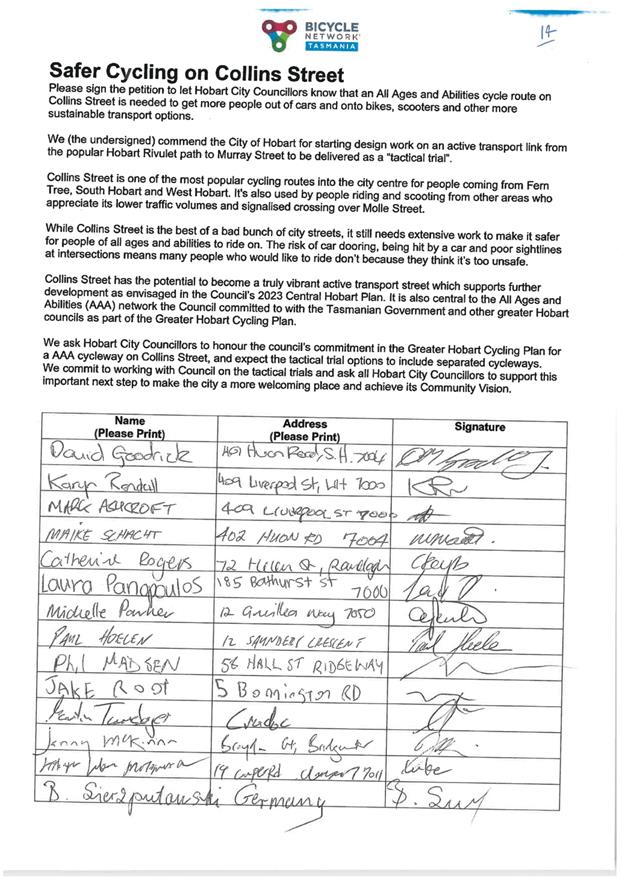 BICYCLE
NETWORK
TASMANIA
14
Safer Cycling on Collins Street
Please sign the petition to let Hobart City Councillors know that an All Ages and Abilities cycle route on
Collins Street is needed to get more people out of cars and onto bikes, scooters and other more
sustainable transport options.
We (the undersigned) commend the City of Hobart for starting design work on an active transport link from
the popular Hobart Rivulet path to Murray Street to be delivered as a "tactical trial".
Collins Street is one of the most popular cycling routes into the city centre for people coming from Fern
Tree, South Hobart and West Hobart. It's also used by people riding and scooting from other areas who
appreciate its lower traffic volumes and signalised crossing over Molle Street.
While Collins Street is the best of a bad bunch of city streets, it still needs extensive work to make it safer
for people of all ages and abilities to ride on. The risk of car dooring, being hit by a car and poor sightlines
at intersections means many people who would like to ride don't because they think it's too unsafe.
Collins Street has the potential to become a truly vibrant active transport street which supports further
development as envisaged in the Council's 2023 Central Hobart Plan. It is also central to the All Ages and
Abilities (AAA) network the Council committed to with the Tasmanian Government and other greater Hobart
councils as part of the Greater Hobart Cycling Plan.
We ask Hobart City Councillors to honour the council's commitment in the Greater Hobart Cycling Plan for
a AAA cycleway on Collins Street, and expect the tactical trial options to include separated cycleways.
We commit to working with Council on the tactical trials and ask all Hobart City Councillors to support this
important next step to make the city a more welcoming place and achieve its Community Vision.
Name (Please Print) Address (Please Print) Signature
David Goodrick 401 Huon Road, S.H. 7004
Karyn Rendall 409 Liverpool St, WH 7000 KR
MARK ASHCROFT 409 LIVERPOOL ST 7000
MAIKE SCHACHT 402 HUON RD 7004
Catherine Rogers 72 Helen St,
Laura Panopoulos 185 Bathurst St 7000
Michelle Parker 12 Way 7050
PAUL HOELEN 12 SAUNDERS CRESCENT Paul
PHIL MADSEN 56 HALL ST RIDGEWAY
JAKE ROOT 5 Bonnington RD
Jenny McKinn
19 7011
B. Sierzputowski Germany